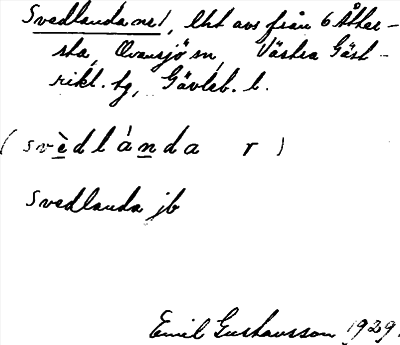 Svedlanda nr 1, lht avs från 6 Åker-
sta, Ovansjö sn, Västra Gäst-
rikl. tg, Gävleb. l.
(svèdlánda r)
Svedlanda jb
Emil Gustavsson 1929.